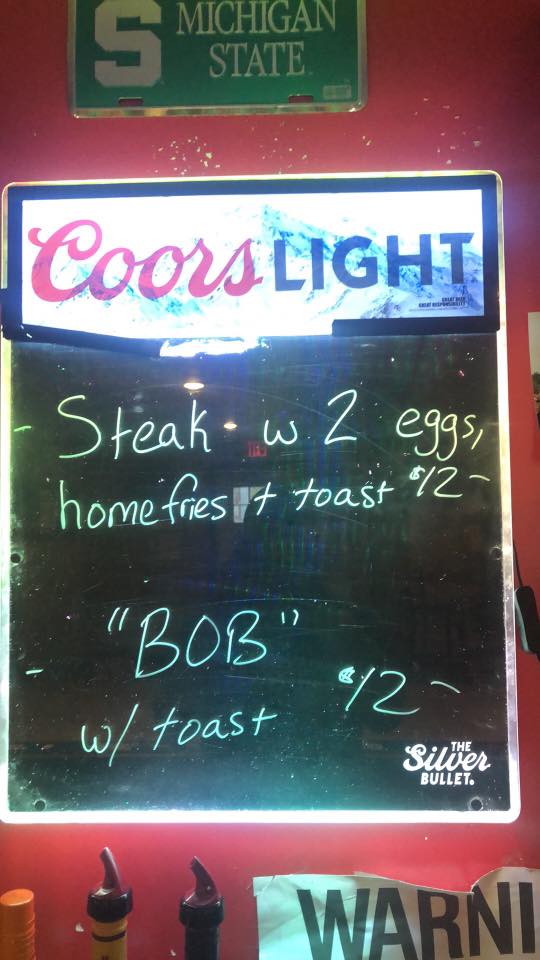 S MICHIGAN
STATE
Coors LIGHT
GREAT BEER
GREAT RESPONSIBILITY
- Steak w 2 eggs,
homefries + toast $12-
"BOB"
- $12-
w/ toast
THE
Silver
BULLET.
WARNI